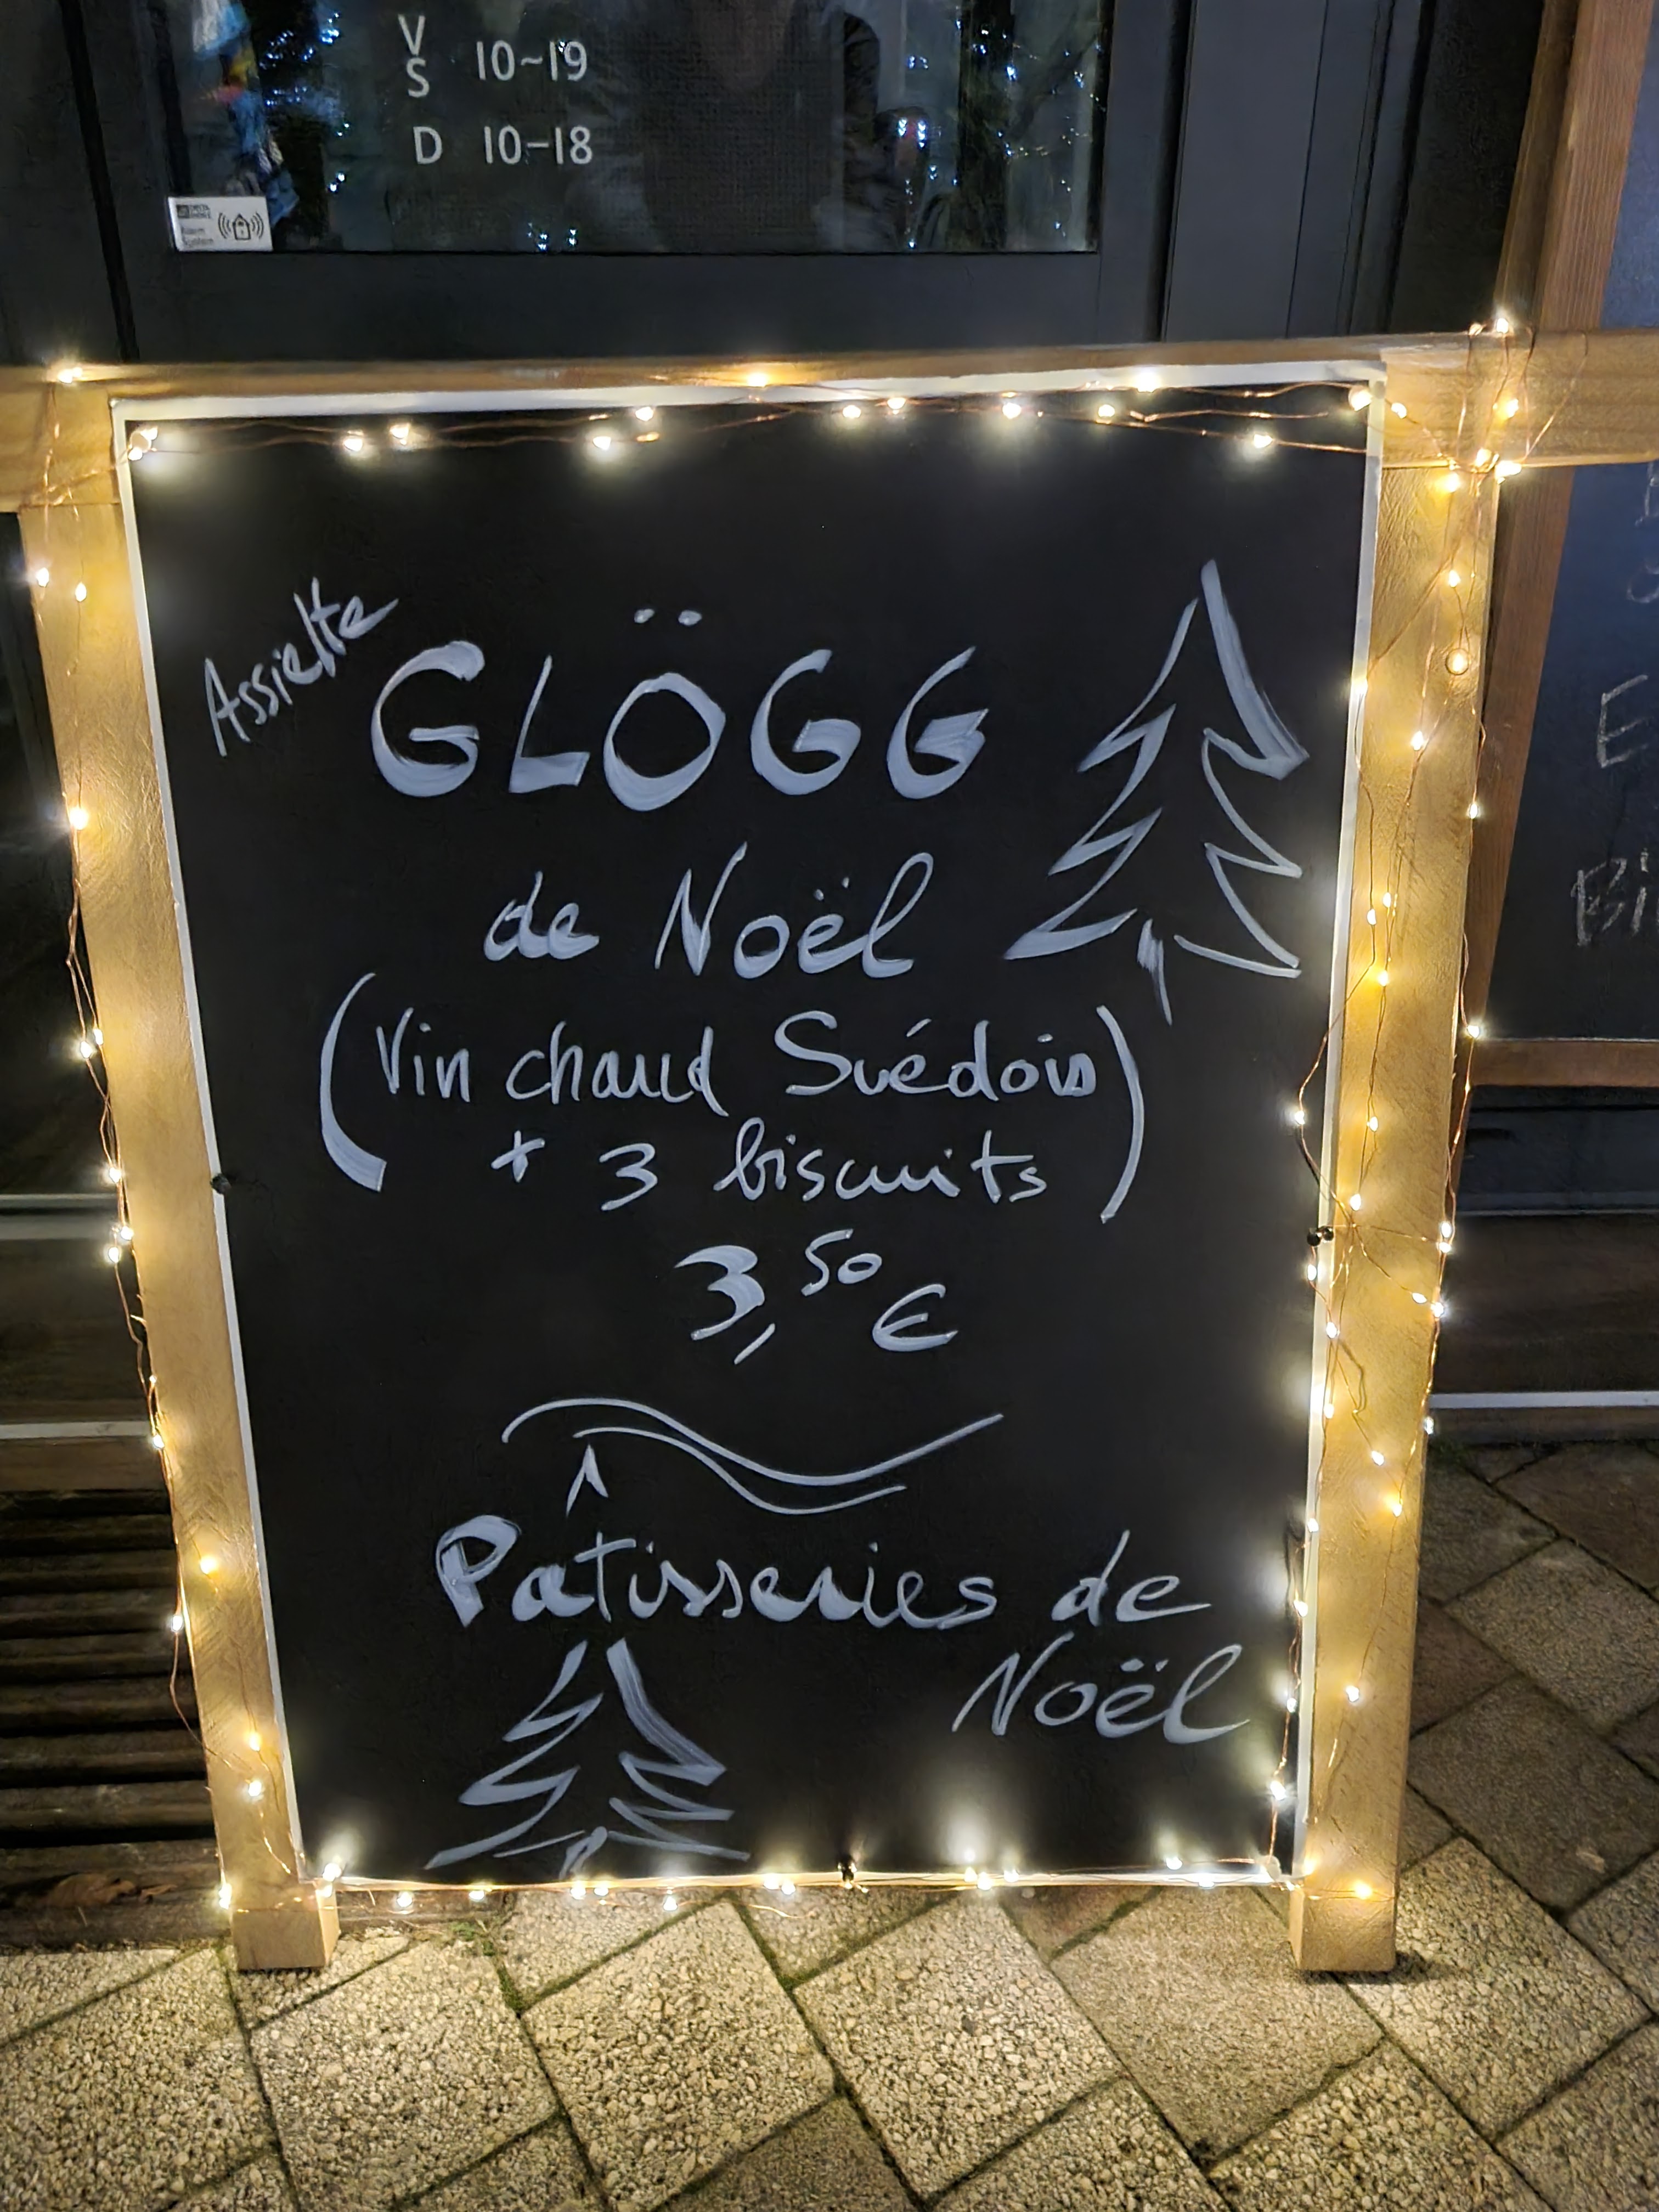 V
S 10~19
D 10-18
Alarm
System
Assiette
GLÖGG
de Noël
(Vin chaud Suédois
+ 3 biscuits)
3,50 €
Pâtisseries de
Noël
E
Bi